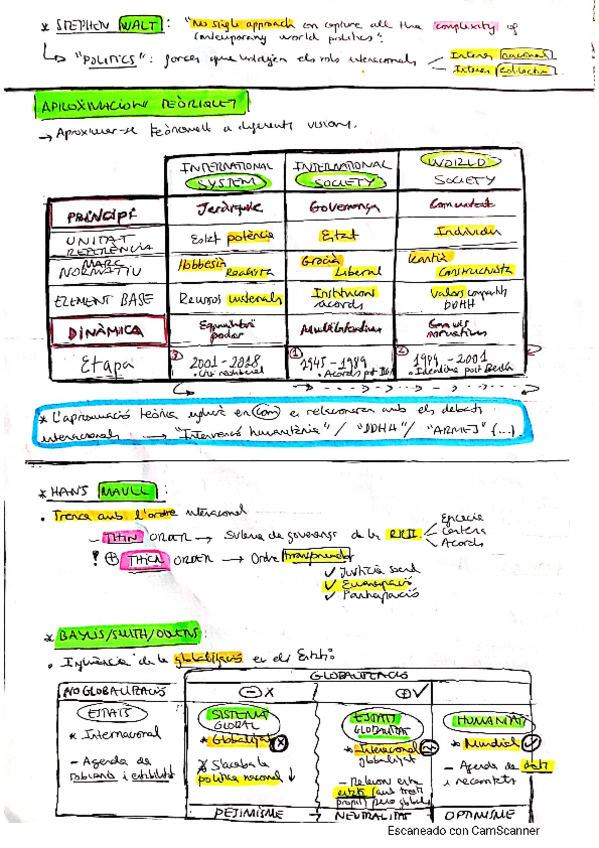 * STEPHEN WALT : "No single approach can capture all the complexity of
contemporary world politics".
"POLITICS" : forces que
Interès nacional
Interès col·lectiu
APROXIMACIONS TEÒRIQUES
→ Aproximar-se teòricament a diferents visions.
INTERNATIONAL SYSTEM | INTERNATIONAL SOCIETY | WORLD SOCIETY
PRINCIPI | Jeràrquic | Governança | Comunitats
UNITAT REFERÈNCIA | Estat potència | Estat | Individu
MARC NORMATIU | Hobbesià Realista | Grocià Liberal | Kantià Constructivista
ELEMENT BASE | Recursos materials | Institucions acords | Valors compartits DDHH
DINÀMICA | Equilibri poder | Multilateralisme | Canvis normatius
Etapa | ③ 2001-2018 | ① 1945-1989 | ② 1989-2001
* L'aproximació teòrica influirà en com es relacionaran amb els debats
internacionals → "Intervenció humanitària" / "DDHH" / "ARMES" (...)
* HANS MAULL :
• Trenca amb l'ordre internacional
- THIN ORDER → Sistema de governança de les RRII
Eficàcia
Acords
! ⊕ THICK ORDER → Ordre transformador
✓ Justícia social
✓ Emancipació
✓ Participació
* BAYLIS/SMITH/OWENS :
• Influència de la globalització en els Estats
GLOBALITZACIÓ
NO GLOBALITZACIÓ | ⊖ × | ⊕ ✓
ESTATS | SISTEMA GLOBAL | ESTATS GLOBALITZATS | HUMANITAT
* Internacional | * Globalitzat | * Internacional globalitzat | * Mundial ✓
- Agenda de sobirania i estabilitat | S'acaba la política nacional ↓ | - Relacions entre estats | - Agenda de drets i necessitats
PESSIMISME → NEUTRALITAT | OPTIMISME
Escaneado con CamScanner